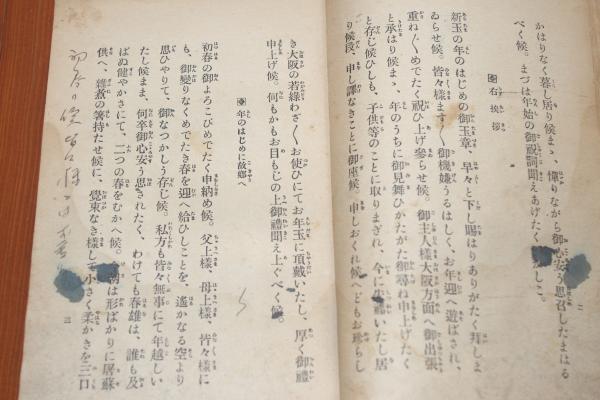 かはりなく暮し居り候まゝ、憚りながら御心安く思召したまはる
べく候。まづは年始の御祝詞聞えあげたく
右挨拶
新玉の年のはじめの御玉章、早々と下し賜はりありがたく拜しま
ゐらせ候。皆々樣ます〳〵御機嫌うるはしく、お年迎へ遊ばされ、
重ね〴〵めでたく祝ひ上げ參らせ候。御主人樣大阪方面へ御出張
と承はり候まゝ、年のうちに御見舞ひかたがた御尋ね申上げたく
と存じ候ひしも、子供等のことに取りまぎれ、今に いたし居
り候段、申し譯なきことに御座候。申しおくれ候へどもお珍らし
き大阪の若綠わざ〳〵お使ひにてお年玉に頂戴いたし、厚く御禮
申上げ候。何もかもお目もじの上御禮聞え上ぐべく候。
年のはじめに故鄕へ
初春の御よろこびめでたく申納め候。父上樣、母上樣、皆々樣に
も、御變りなくめでたき春を迎へ給ひしことを、遙かなる空より
思ひやりて、御なつかしう存じ候。私方も皆々無事にて年越しい
たし候まま、何卒御心安う思されたく、わけても春雄は、誰も及
ばぬ健やかさにて、二つの春をむかへ候。 は形ばかりに屠蘇
供へ、雜煮の箸持たせ候に、覺束なき樣して小さく柔かきを三口
初春の
三